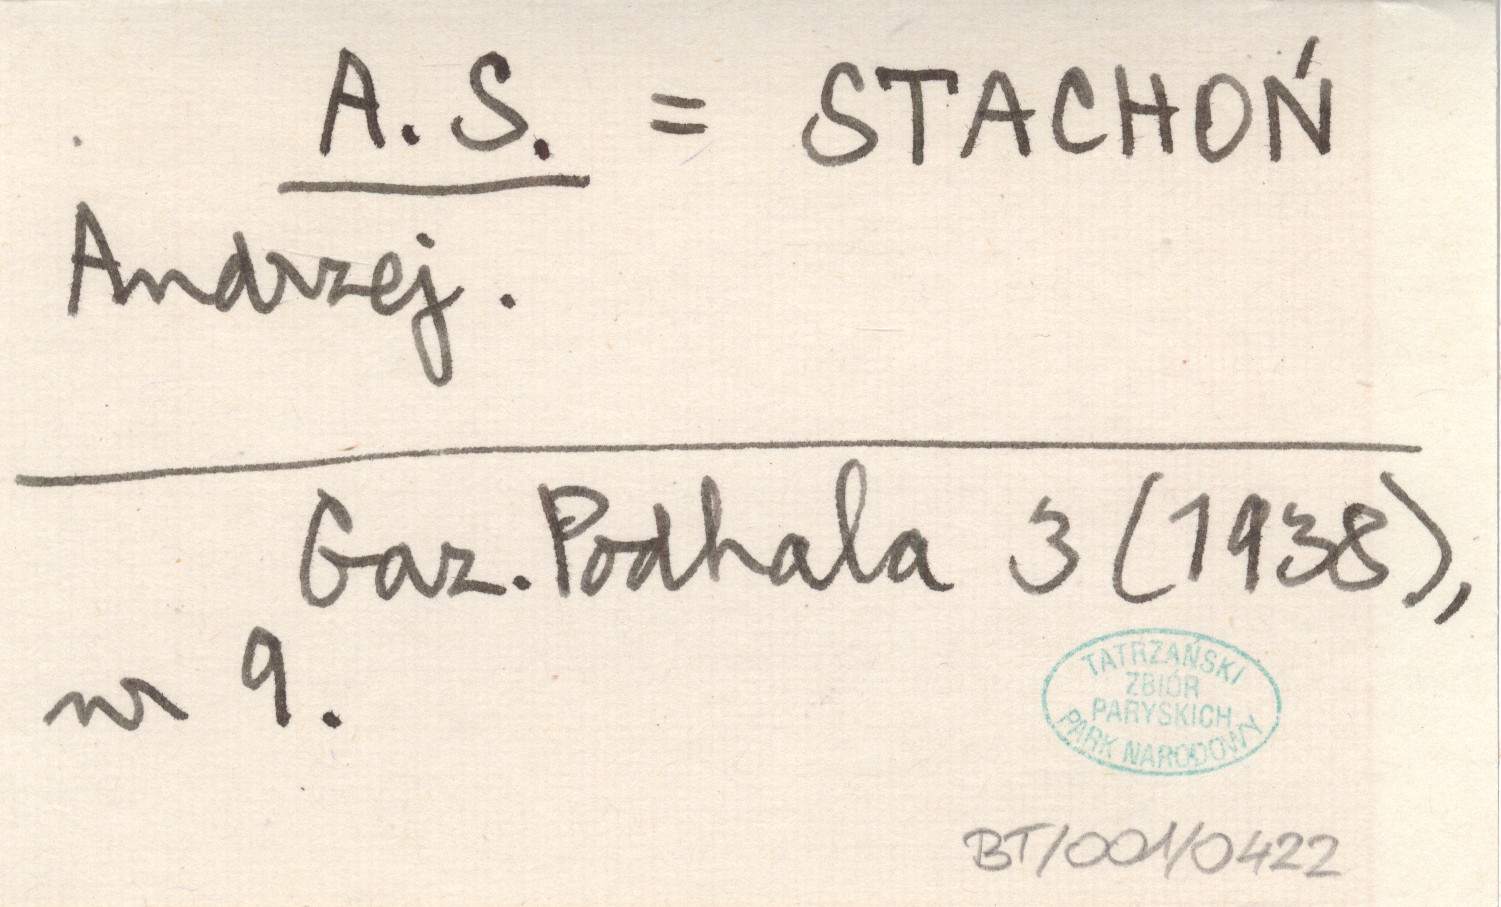 A. S. = STACHOŃ
Andrzej.
Gaz. Podhala 3 (1938),
nr 9.
TATRZAŃSKI
ZBIÓR
PARYSKICH
PARK NARODOWY
BT/001/0422